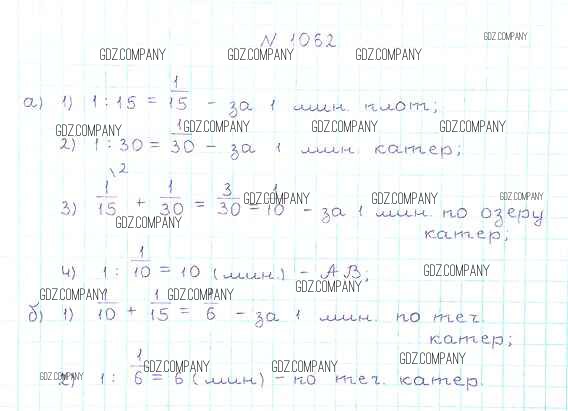 № 1062
а) 1) 1 : 15 = 1/15 - за 1 мин. плот;
2) 1 : 30 = 1/30 - за 1 мин. катер;
3) 1/15 \2 + 1/30 = 3/30 = 1/10 - за 1 мин. по озеру
катер;
4) 1 : 1/10 = 10 (мин) - АВ;
б) 1) 1/10 + 1/15 = 1/6 - за 1 мин. по теч.
катер;
2) 1 : 1/6 = 6 (мин) - по теч. катер.
GDZ.COMPANY
GDZ.COMPANY GDZ.COMPANY GDZ.COMPANY
GDZ.COMPANY GDZ.COMPANY GDZ.COMPANY GDZ.COMPANY
GDZ.COMPANY GDZ.COMPANY GDZ.COMPANY
GDZ.COMPANY
GDZ.COMPANY
GDZ.COMPANY GDZ.COMPANY GDZ.COMPANY
GDZ.COMPANY
GDZ.COMPANY GDZ.COMPANY GDZ.COMPANY